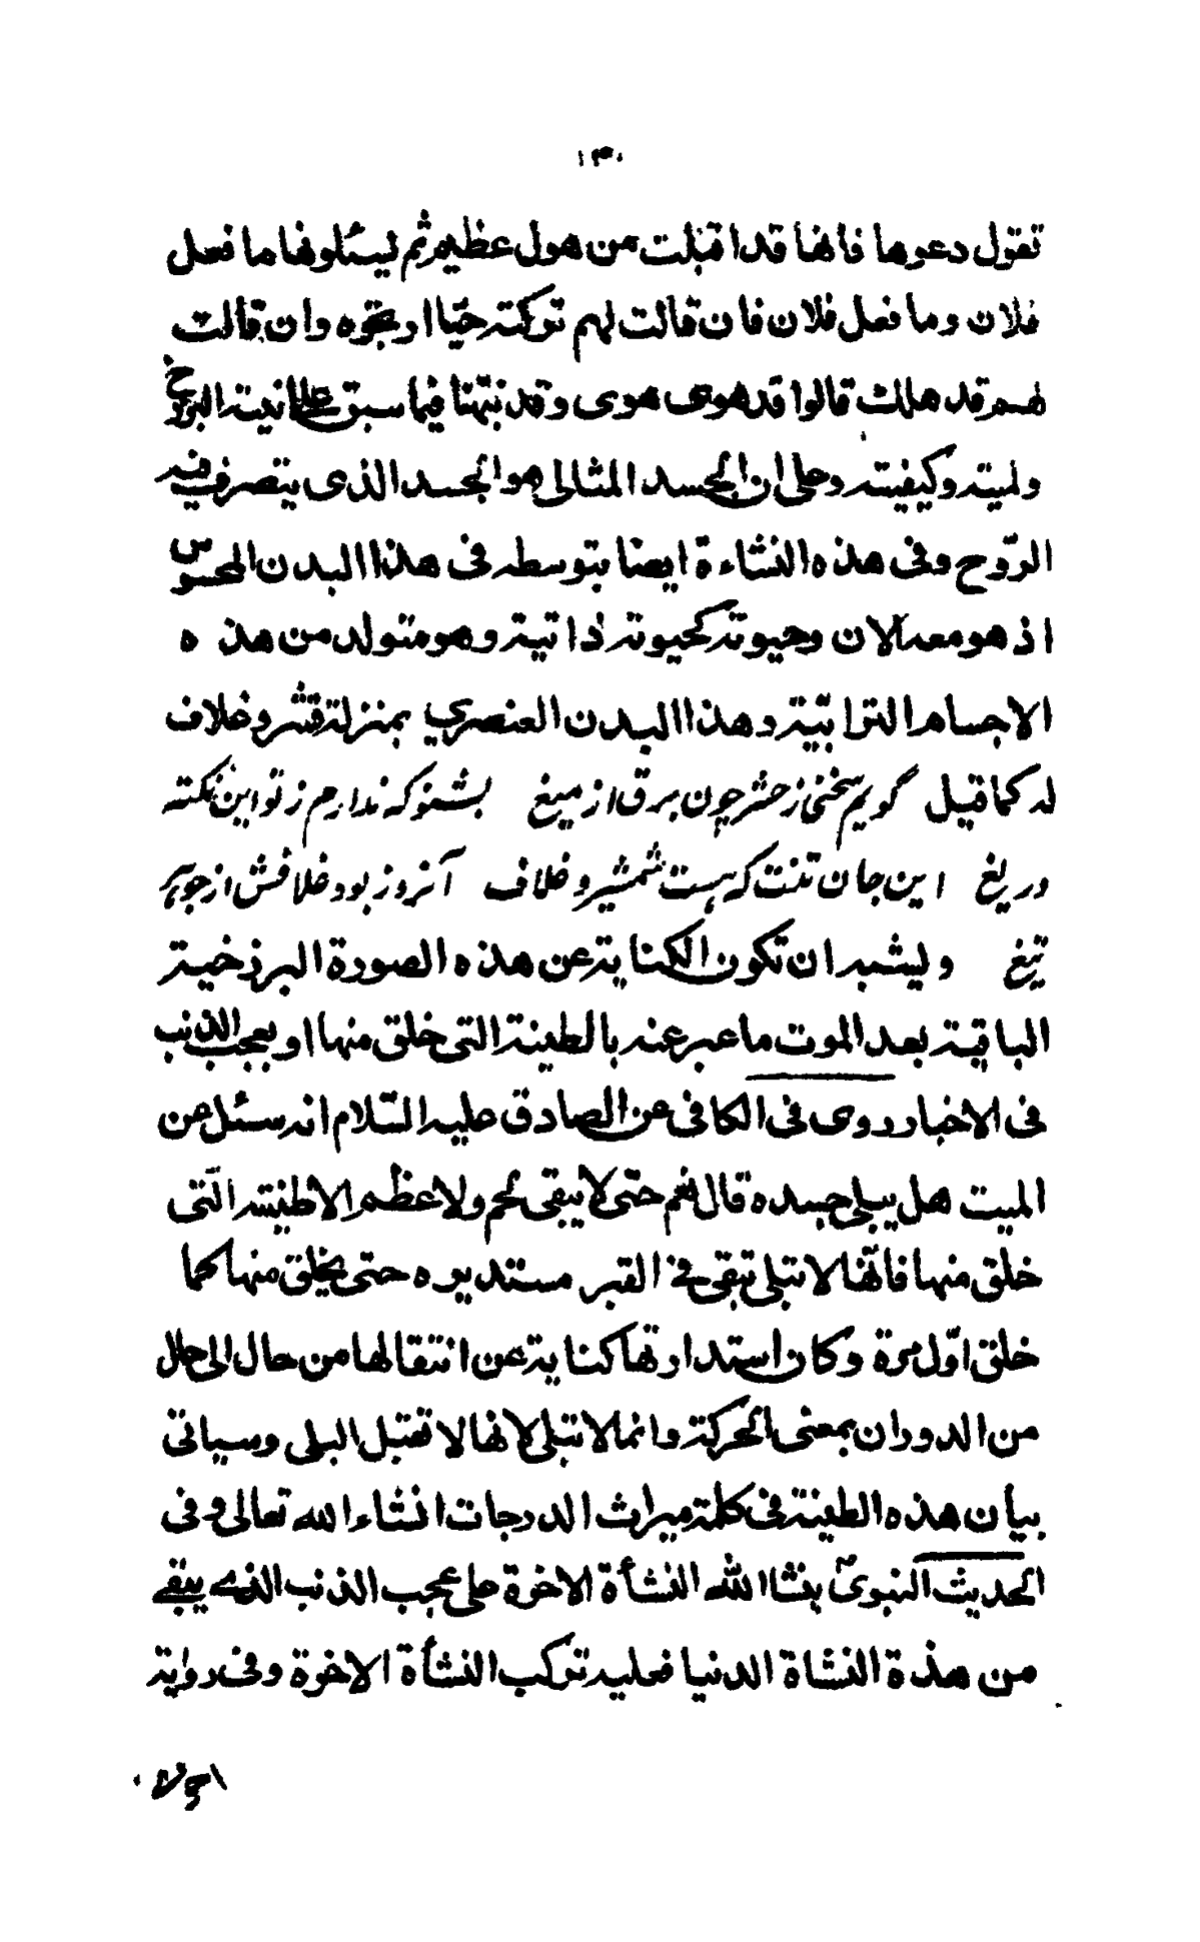 ١٣٠
تقول دعوها فانها قد اقبلت من هول عظيم ثم يسئلونها ما فعل
فلان وما فعل فلان فان قالت لهم تركته حيّا ارتجوه وان قالت
لهم قد هلك قالوا قد هوى هوى وقد نبّهنا فيما سبق على انيته البرزخ
ولميته وكيفيته وعلى ان الجسد المثالى هو الجسد الذى يتصرف فيه
الرّوح وفى هذه النشاءة ايضا بتوسطه فى هذا البدن المحسوس
اذ هو معه الان وحيوته كحيوته ذاتية وهو متولد من هذه
الاجسام الترابيّة وهذا البدن العنصري بمنزلة قشر وغلاف
له كما قيل گويم سخنى ز حشر چون برق از ميغ بشنو كه ندارم ز تو اين نكته
دريغ اين جان تنت كه هست شمشير و غلاف آنروز بود غلافش از جوهر
تيغ ويشبه ان تكون الكناية عن هذه الصورة البرزخية
الباقية بعد الموت ما عبر عنه بالطينة التى خلق منها او بعجب الذنب
فى الاخبار روى فى الكافى عن الصادق عليه السّلام انه سئل عن
الميت هل يبلى جسده قال نعم حتى لا يبقى لحم ولا عظم الا طينته الّتى
خلق منها فانّها لا تبلى تبقى فى القبر مستديره حتى يخلق منها كما
خلق اوّل مرة وكان استدارتها كناية عن انتقالها من حال الى حال
من الدوران بمعنى الحركة وانما لا تبلى لانها لا تقبل البلى وسياتى
بيان هذه الطينة فى كلمة ميراث الدرجات انشاء الله تعالى وفى
الحديث النبوىّ ينشا الله النشأة الاخرة على عجب الذنب الذى يبقى
من هذة النشاة الدنيا فعليه تركب النشأة الاخرة وفى رواية